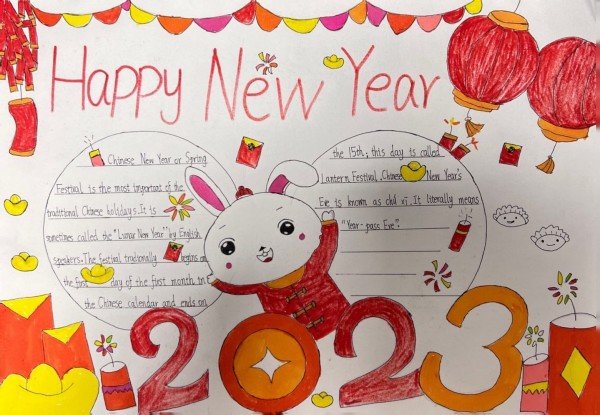 Happy New Year
Chinese New Year or Spring
Festival is the most important of the
traditional Chinese holidays. It is
sometimes called the "Lunar New Year" by English
speakers. The festival trditionally begins on
the first day of the first month in t
the Chinese calendar and ends on
the 15th; this day is called
Lantern Festival. Chinese New Year's
Eve is known as chú xī. It literally means
"Year-pass Eve".
2023